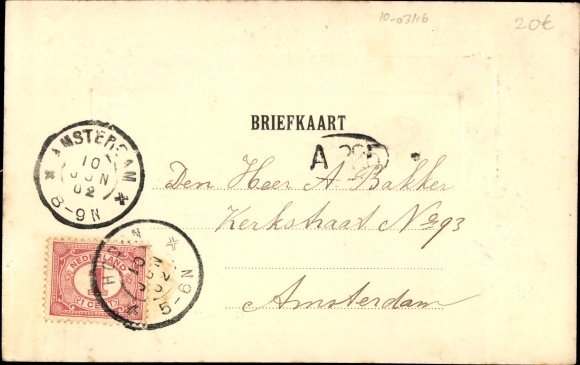 10-03/16
20€
BRIEFKAART
AMSTERDAM
10
JUN
02
8-9N
A
Den Heer A Bakker
Kerkstraat No 93
Amsterdam
NEDERLAND
1
CENT
10
JUN
02
5-6N